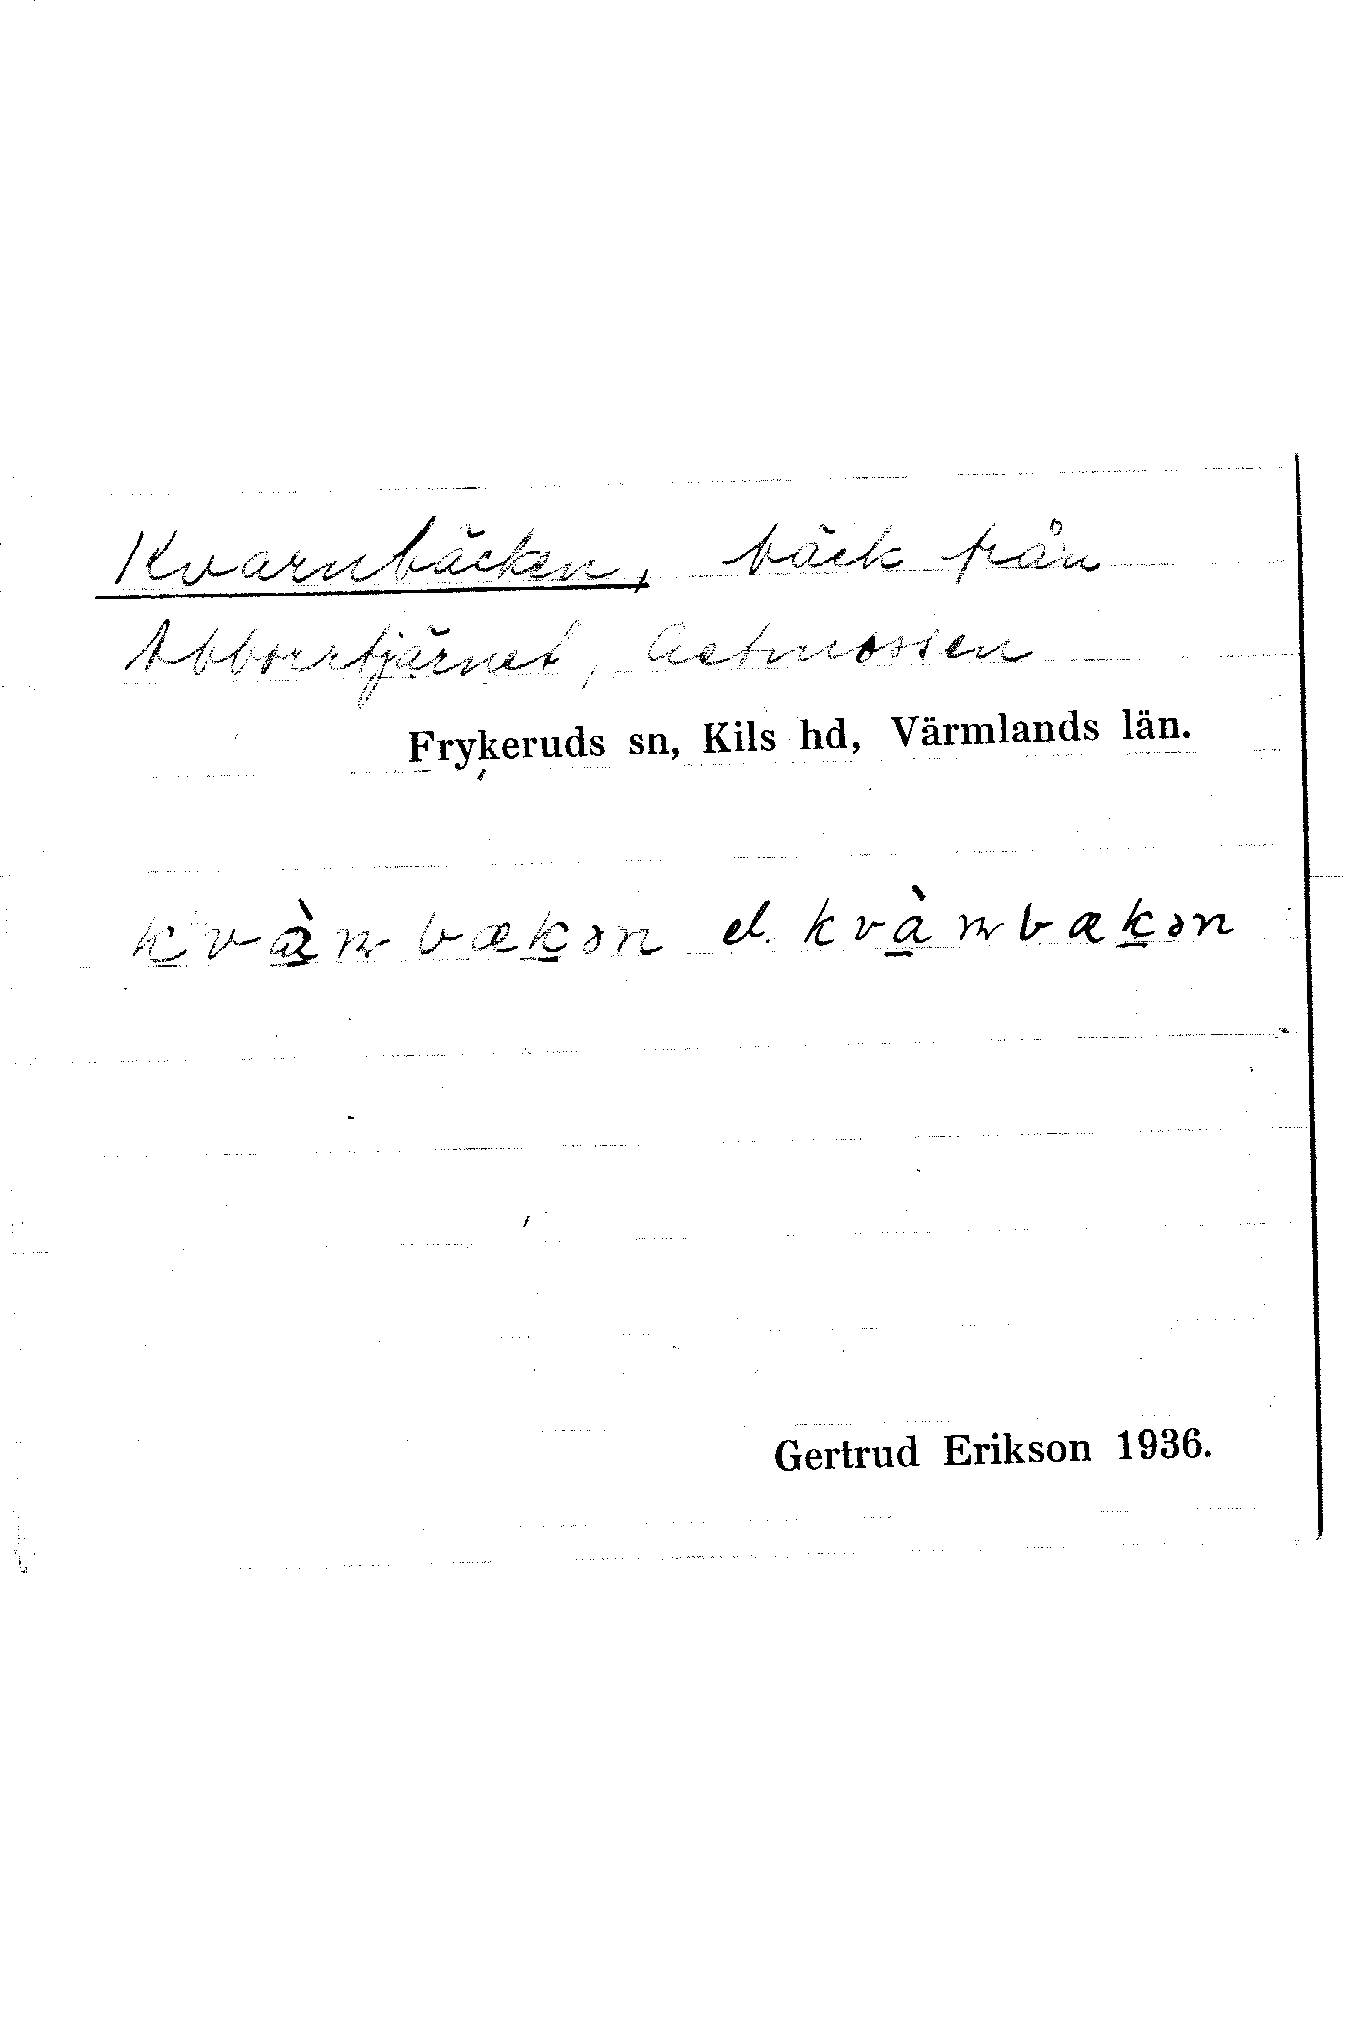 Kvarnbäcken, bäck från
Abborrtjärnet, Aatmossen
Frykeruds sn, Kils hd, Värmlands län.
kvàɳbækən el. kvàɳbækən
Gertrud Erikson 1936.